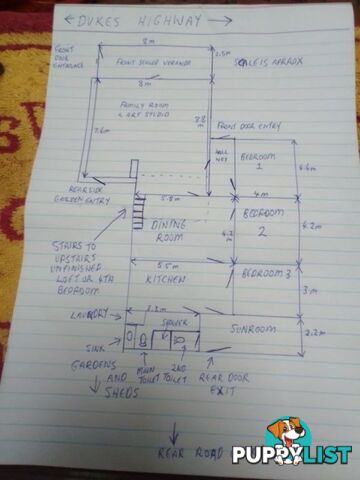 ← DUKES HIGHWAY →
8m
FRONT
DOOR
ENTRANCE
FRONT
VERANDA
2.5m
SCALE IS APROX
8m
FAMILY ROOM
& ART STUDIO
7.6m
8.8
m
FRONT DOOR ENTRY
HALL
WAY
BEDROOM
1
4.6m
REAR SIDE
GARDEN ENTRY
5.5m
4m
DINING
ROOM
BEDROOM
2
4.2
m
4.2m
STAIRS TO
UPSTAIRS
UNFINISHED
LOFT OR 4TH
BEDROOM
5.5m
KITCHEN
BEDROOM 3
3m
LAUNDRY
3.3m
SHOWER
SUNROOM
2.2m
SINK
GARDENS
AND
SHEDS
MAIN
TOILET
2ND
TOILET
REAR DOOR
EXIT
REAR ROAD
PUPPYLIST